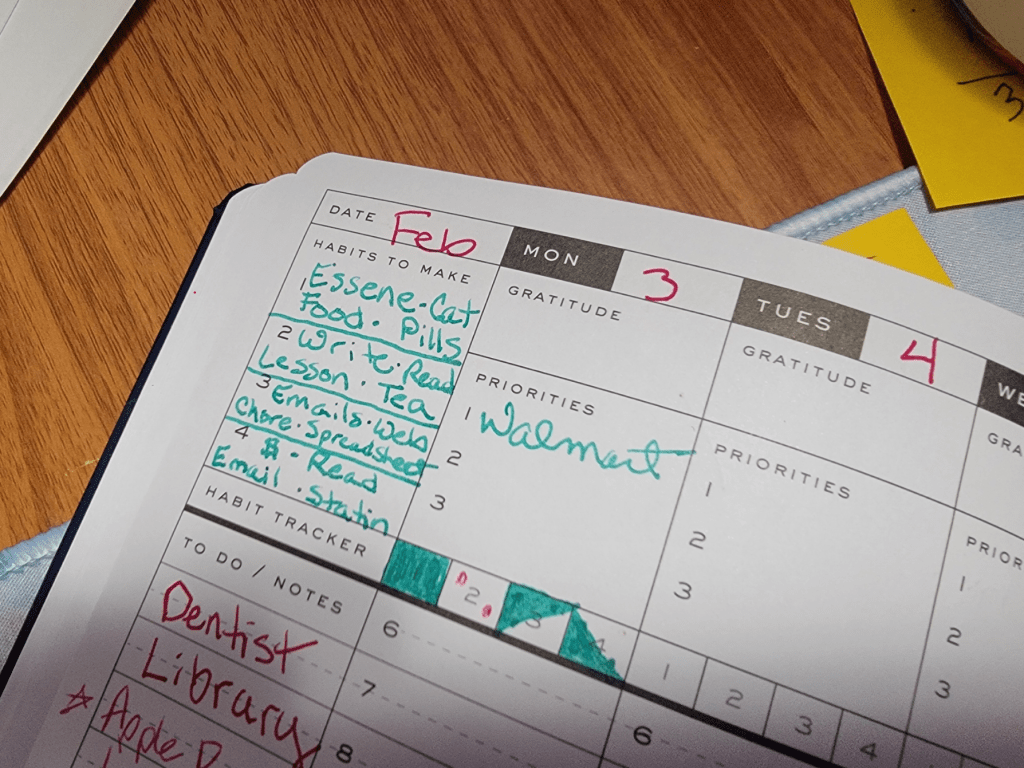 DATE Feb
HABITS TO MAKE
1 Essene · Cat
Food · Pills
2 Write · Read
Lesson · Tea
3 Emails · Web
Chore · Spreadsheet
4 $ · Read
Email · Statin
HABIT TRACKER
TO DO / NOTES
Dentist
Library
☆ Apple
MON 3
GRATITUDE
PRIORITIES
1 Walmart
2
3
2 3 4
6
7
8
TUES 4
GRATITUDE
PRIORITIES
1
2
3
1 2 3 4
6
WE
GRA
PRIOR
1
2
3